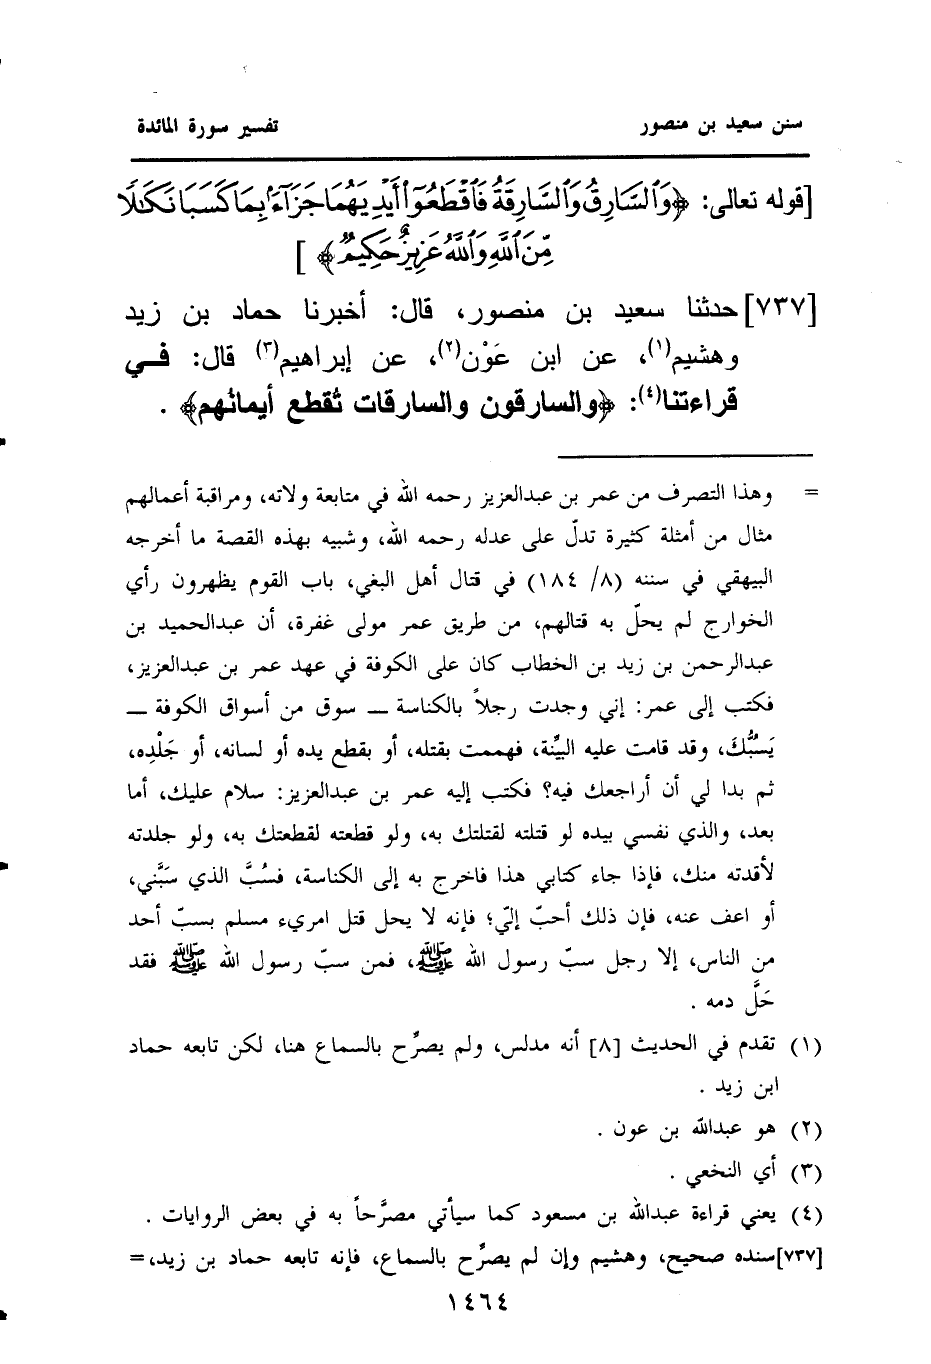 سنن سعيد بن منصور
تفسير سورة المائدة
[قوله تعالى: ﴿وَٱلسَّارِقُ وَٱلسَّارِقَةُ فَٱقْطَعُوٓا۟ أَيْدِيَهُمَا جَزَآءًۢ بِمَا كَسَبَا نَكَٰلًا
مِّنَ ٱللَّهِ وَٱللَّهُ عَزِيزٌ حَكِيمٌ﴾ ]
[٧٣٧] حدثنا سعيد بن منصور، قال: أخبرنا حماد بن زيد
وهشيم(١)، عن ابن عَوْن(٢)، عن إبراهيم(٣) قال: في
قراءتنا(٤): ﴿والسارقون والسارقات تُقطع أيمانُهم﴾ .
= وهذا التصرف من عمر بن عبدالعزيز رحمه الله في متابعة ولاته، ومراقبة أعمالهم
مثال من أمثلة كثيرة تدلّ على عدله رحمه الله، وشبيه بهذه القصة ما أخرجه
البيهقي في سننه (٨/ ١٨٤) في قتال أهل البغي، باب القوم يظهرون رأي
الخوارج لم يحلّ به قتالهم، من طريق عمر مولى غفرة، أن عبدالحميد بن
عبدالرحمن بن زيد بن الخطاب كان على الكوفة في عهد عمر بن عبدالعزيز،
فكتب إلى عمر: إني وجدت رجلاً بالكناسة ــ سوق من أسواق الكوفة ــ
يَسُبُّكَ، وقد قامت عليه البيِّنة، فهممت بقتله، أو بقطع يده أو لسانه، أو جَلْدِه،
ثم بدا لي أن أراجعك فيه؟ فكتب إليه عمر بن عبدالعزيز: سلام عليك، أما
بعد، والذي نفسي بيده لو قتلته لقتلتك به، ولو قطعته لقطعتك به، ولو جلدته
لأقدته منك، فإذا جاء كتابي هذا فاخرج به إلى الكناسة، فسُبَّ الذي سَبَّني،
أو اعف عنه، فإن ذلك أحبّ إليّ؛ فإنه لا يحل قتل امريء مسلم بسبّ أحد
من الناس، إلا رجل سبّ رسول الله ﷺ، فمن سبّ رسول الله ﷺ فقد
حَلَّ دمه .
(١) تقدم في الحديث [٨] أنه مدلس، ولم يصرِّح بالسماع هنا، لكن تابعه حماد
ابن زيد .
(٢) هو عبدالله بن عون .
(٣) أي النخعي .
(٤) يعني قراءة عبدالله بن مسعود كما سيأتي مصرَّحاً به في بعض الروايات .
[٧٣٧] سنده صحيح، وهشيم وإن لم يصرِّح بالسماع، فإنه تابعه حماد بن زيد، =
١٤٦٤